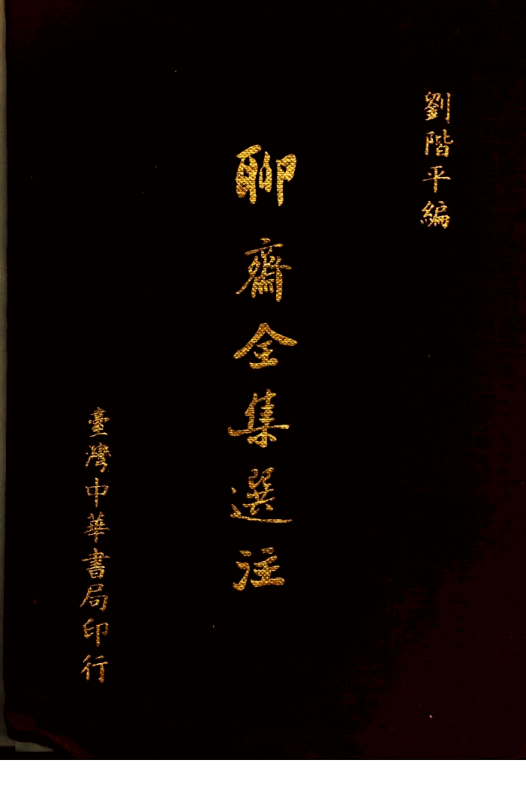 劉階平編
聊齋全集選注
臺灣中華書局印行